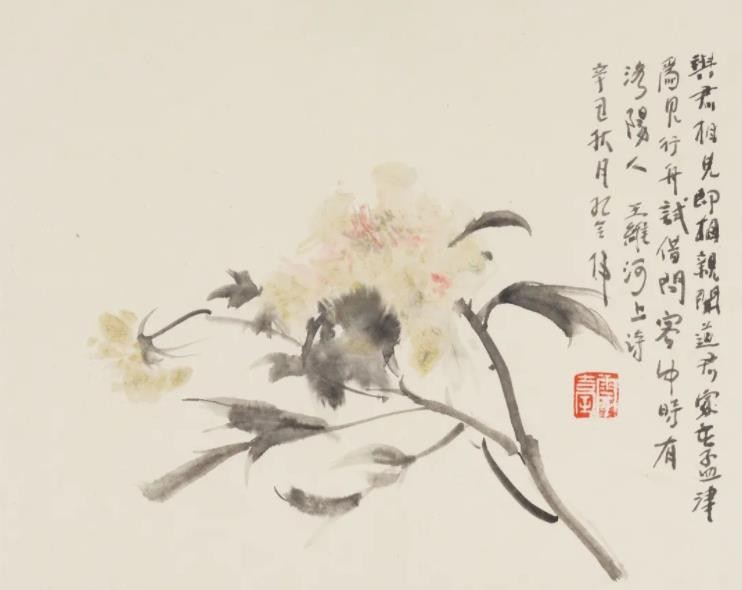 與君相見即相親聞道君家在孟津
爲見行舟試借問客中時有
洛陽人 王維河上詩
辛丑秋月